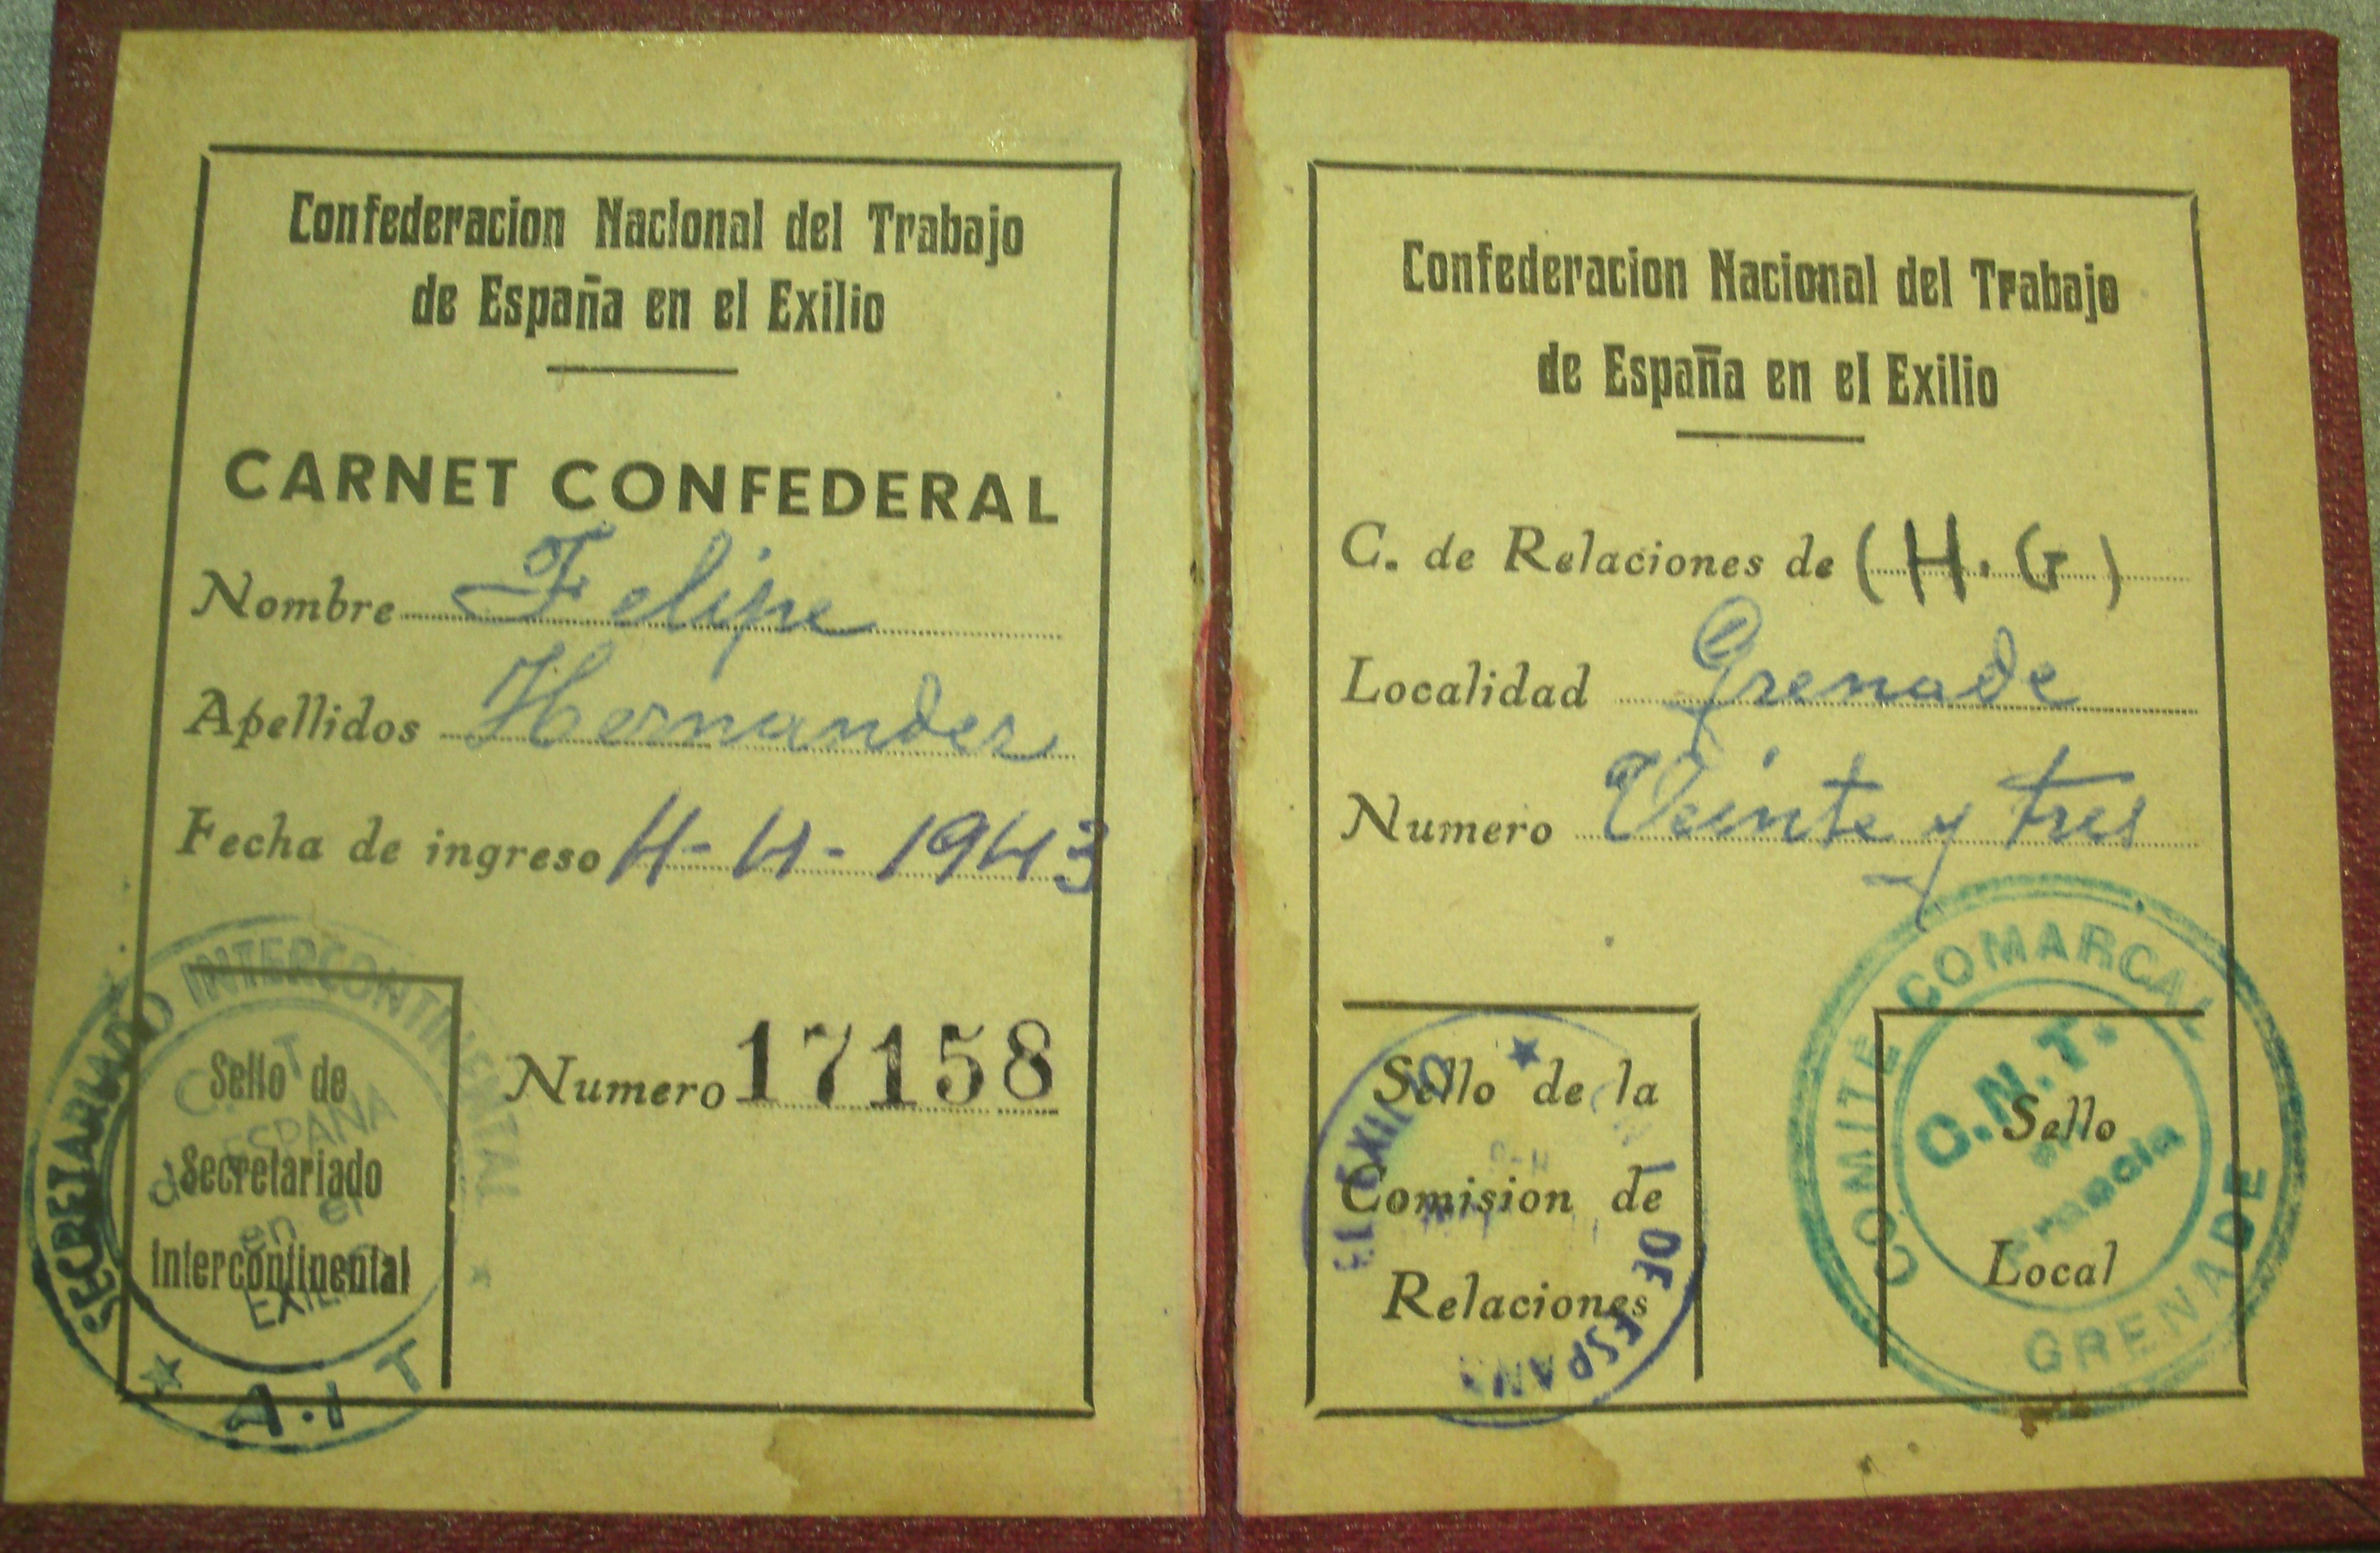 Confederacion Nacional del Trabajo
de España en el Exilio
CARNET CONFEDERAL
Nombre Felipe
Apellidos Hernandez
Fecha de ingreso 4-4-1943
Numero 17158
Sello de
Secretariado
Intercontinental
SECRETARIADO INTERCONTINENTAL
C. T
de ESPAÑA
en el
EXIL
A.I T
Confederacion Nacional del Trabajo
de España en el Exilio
C. de Relaciones de (H. G)
Localidad Grenade
Numero Veinte y tres
Sello de la
Comision de
Relaciones
DE ESPAÑA
EL EXILIO
Sello
Local
COMITE COMARCAL
C.N.T.
Francia
GRENADE